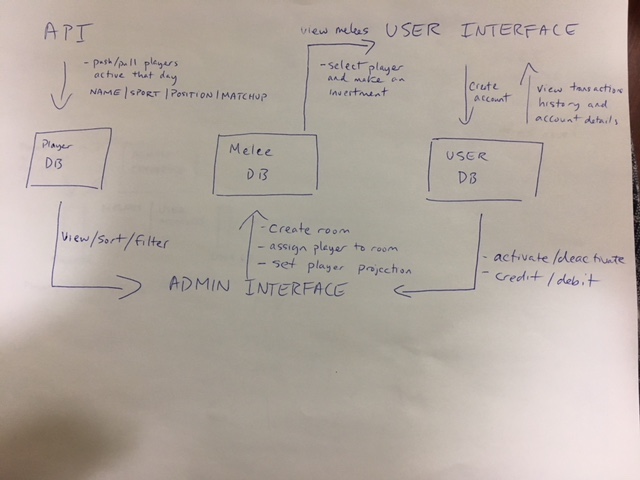 API
view melees
USER INTERFACE
- push/pull players
active that day
NAME | SPORT | POSITION | MATCHUP
- select player
and make an
investment
Create
account
View transaction
history and
account details
Player
DB
Melee
DB
USER
DB
View/sort/filter
- Create room
- assign player to room
- set player projection
- activate/deactivate
- credit/debit
ADMIN INTERFACE